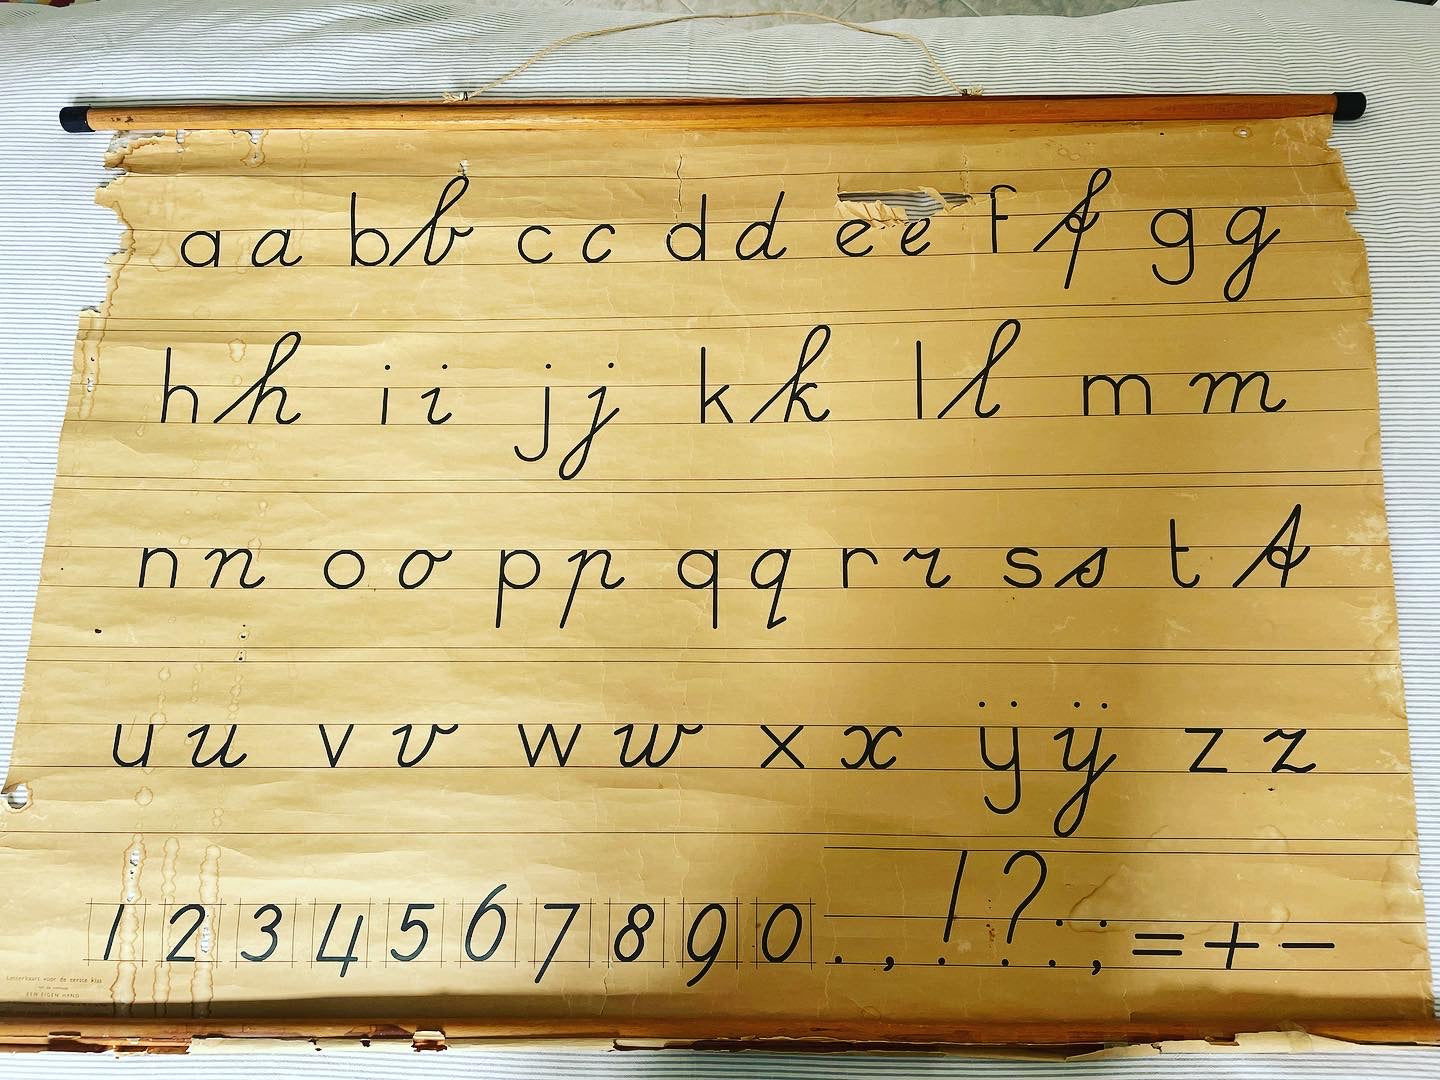 a a b b c c d d e e f f g g
h h i i j j k k l l m m
n n o o p p q q r r s s t t
u u v v w w x x ÿ ÿ z z
1 2 3 4 5 6 7 8 9 0 . , ! ? : ; = + -
Letterkaart voor de eerste klas
EEN EIGEN HAND